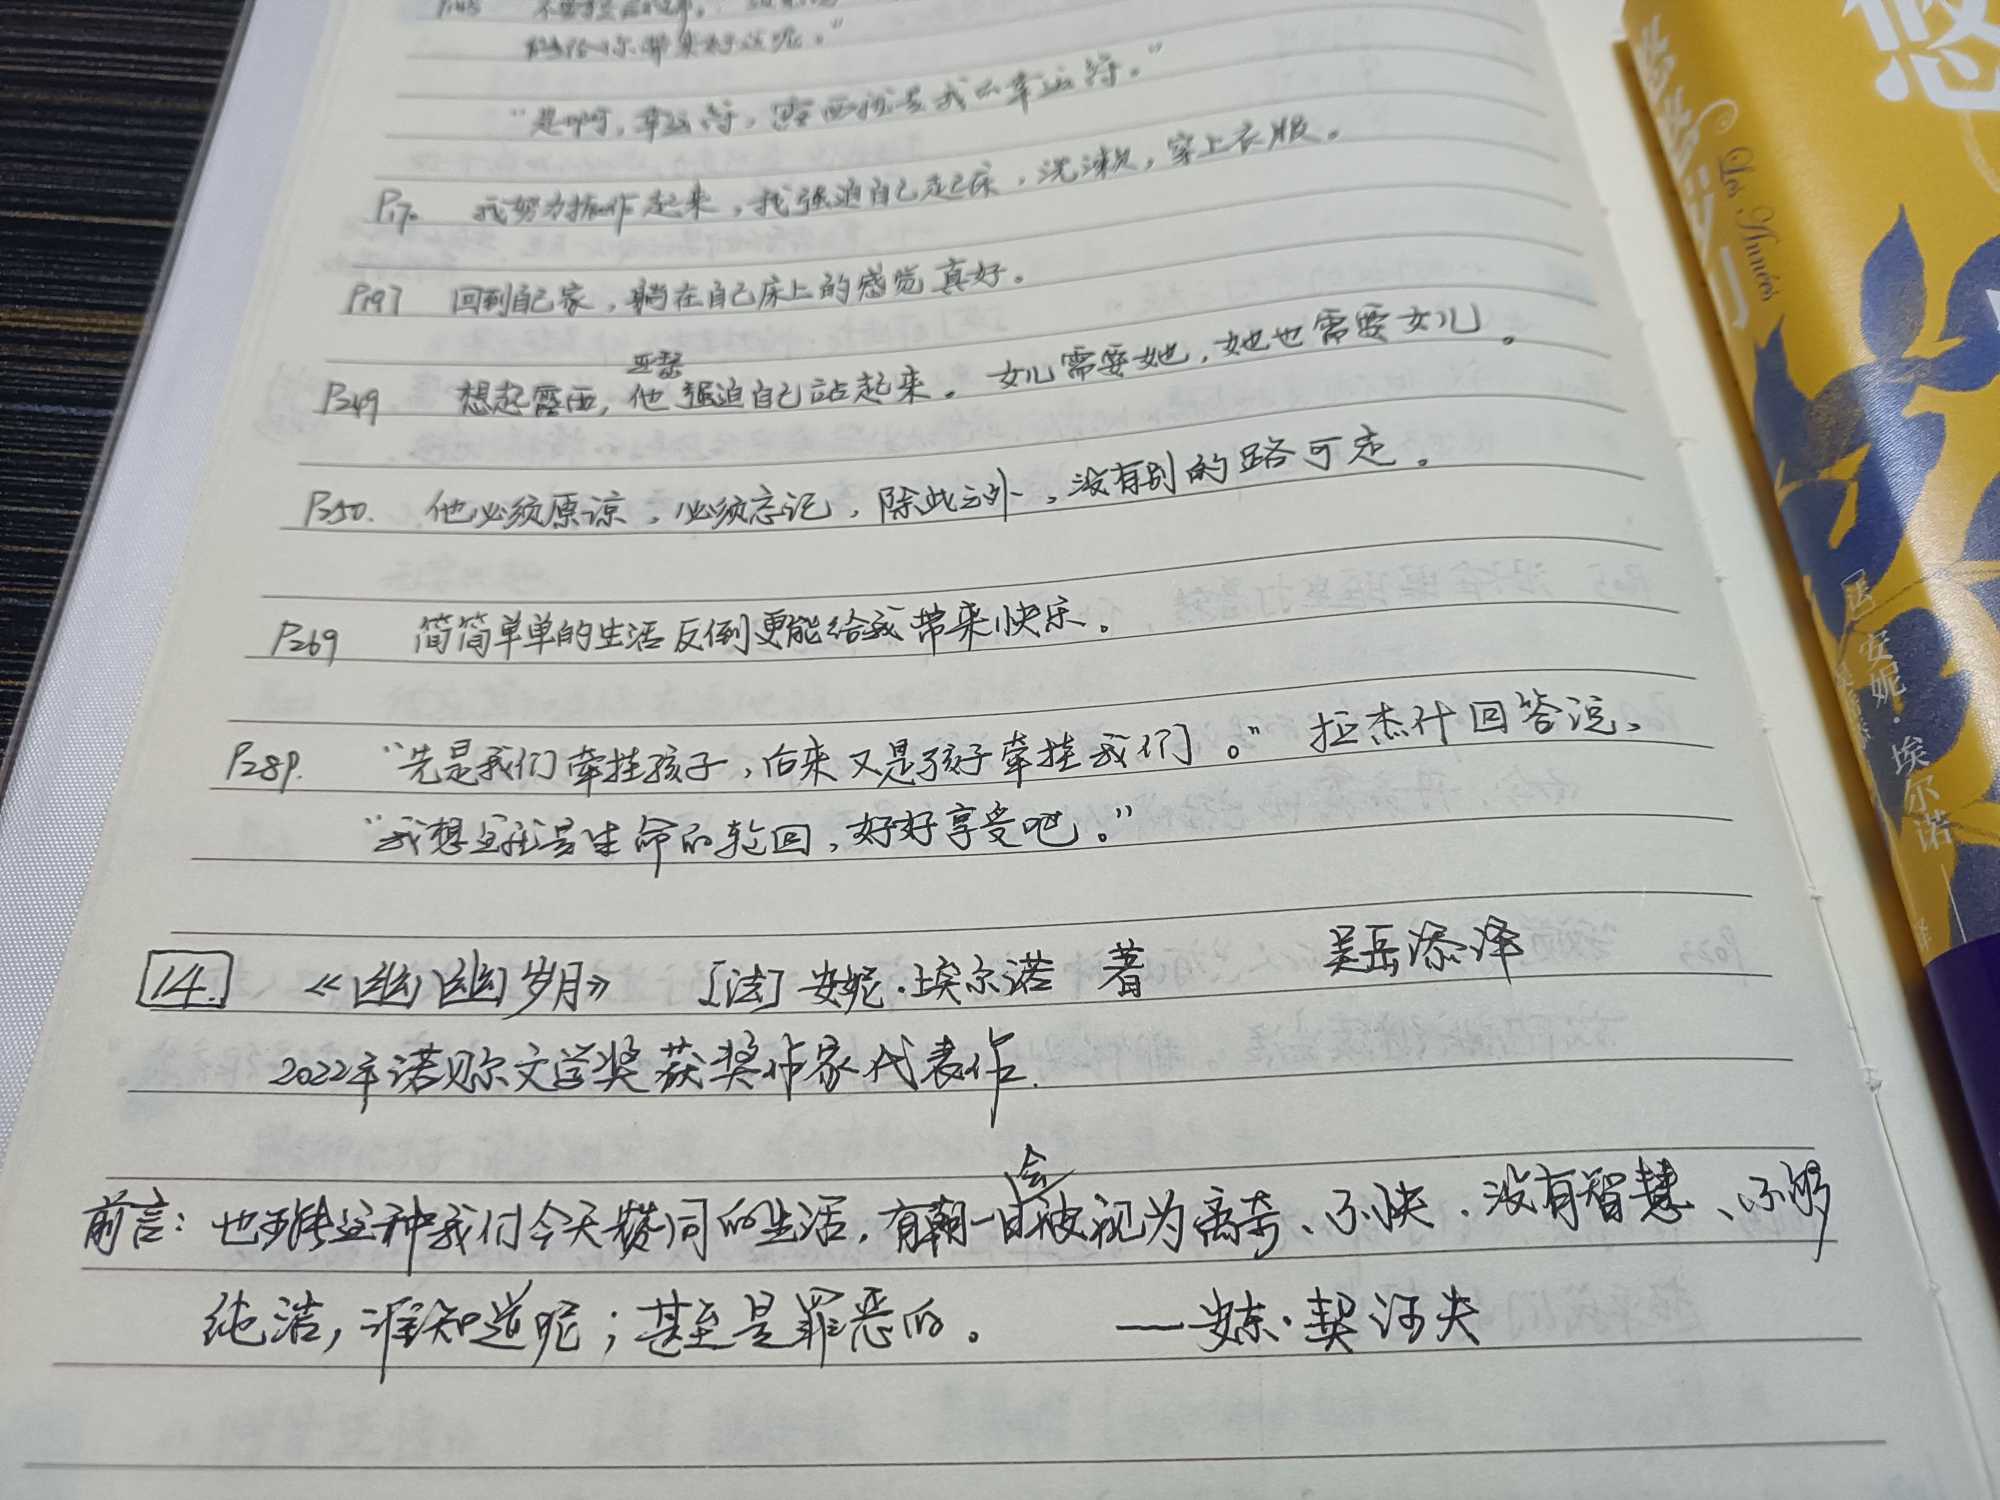 P145
给你带来好运呢。"
"是啊，幸运符，露西就是我的幸运符。"
P170 我努力振作起来，我强迫自己起床，洗漱，穿上衣服。
P197 回到自己家，躺在自己床上的感觉真好。
亚瑟
P249 想起露西，他强迫自己站起来。女儿需要她，她也需要女儿。
P250. 他必须原谅，必须忘记，除此之外，没有别的路可走。
P269 简简单单的生活反倒更能给我带来快乐。
P289. "先是我们牵挂孩子，后来又是孩子牵挂我们。"拉杰什回答道、
"我想这就是生命的轮回，好好享受吧。"
14. 《幽幽岁月》 [法]安妮·埃尔诺 著 吴岳添译
2022年诺贝尔文学奖获奖作家代表作.
会
前言：也可能这种我们今天赞同的生活，有朝一日被视为离奇、不快、没有智慧、不够
纯洁，谁知道呢；甚至是罪恶的。 ——安东·契诃夫
悠
悠悠岁月
Les Années
[法] 安妮·埃尔诺
译